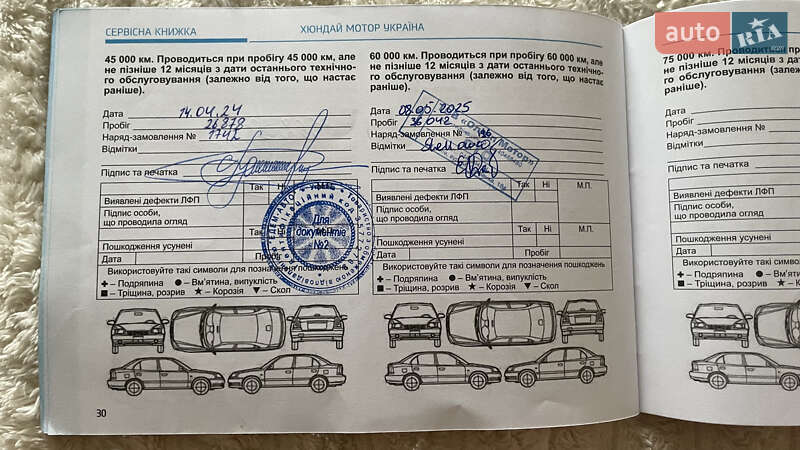 СЕРВІСНА КНИЖКА
ХЮНДАЙ МОТОР УКРАЇНА
auto RIA .com
45 000 км. Проводиться при пробігу 45 000 км, але
не пізніше 12 місяців з дати останнього технічно-
го обслуговування (залежно від того, що настає
раніше).
Дата 14.04.24
Пробіг
Наряд-замовлення № 1742
Відмітки
Підпис та печатка
Так Ні
Виявлені дефекти ЛФП
Підпис особи,
що проводила огляд
Пошкодження усунені
Дата
Для
документів
№2
Використовуйте такі символи для позначення пошкоджень
+ – Подряпина ● – Вм'ятина, випуклість
■ – Тріщина, розрив ★ – Корозія ▼ – Скол
60 000 км. Проводиться при пробігу 60 000 км, але
не пізніше 12 місяців з дати останнього технічно-
го обслуговування (залежно від того, що настає
раніше).
Дата 08.05.2025
Пробіг 36 042
Наряд-замовлення №
Відмітки
Підпис та печатка
Так Ні М.П.
Виявлені дефекти ЛФП
Підпис особи,
що проводила огляд
Пошкодження усунені
Дата Пробіг
Використовуйте такі символи для позначення пошкоджень
+ – Подряпина ● – Вм'ятина, випуклість
■ – Тріщина, розрив ★ – Корозія ▼ – Скол
30
75 000 км. Проводиться
не пізніше 12 місяців з
го обслуговування (зал
раніше).
Дата
Пробіг
Наряд-замовлення №
Відмітки
Підпис та печатка
Виявлені дефекти ЛФП
Підпис особи,
що проводила огляд
Пошкодження усунені
Дата
Використовуйте такі
+ – Подряпина
■ – Тріщина, розрив